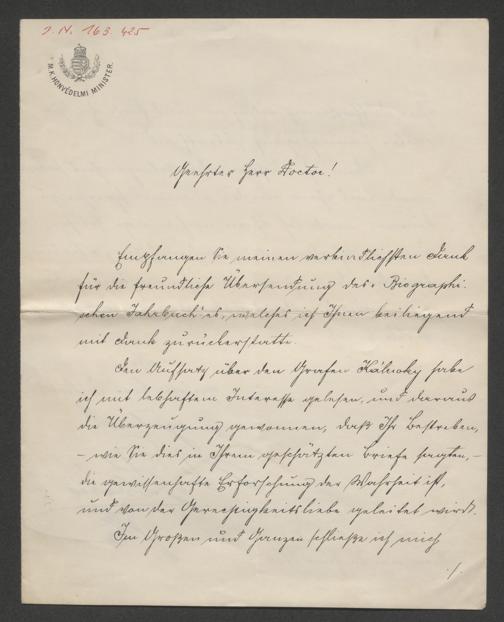 J. N. 163.425
M. K. HONVÉDELMI MINISTER.
Geehrter Herr Doctor!
Empfangen Sie meinen verbindlichsten Dank
für die freundliche Übersendung des „Biographi-
schen Jahrbuch"es, welches ich Ihnen beiliegend
mit Dank zurückerstatte.
Den Aufsatz über den Grafen Kálnoky habe
ich mit lebhaftem Interesse gelesen, und daraus
die Überzeugung gewonnen, daß Ihr Bestreben,
– wie Sie dies in Ihrem geschätzten Briefe sagten, –
die gewissenhafte Erforschung der Wahrheit ist,
und von der Gerechtigkeitsliebe geleitet wird.
Im Großen und Ganzen schließe ich mich
./.